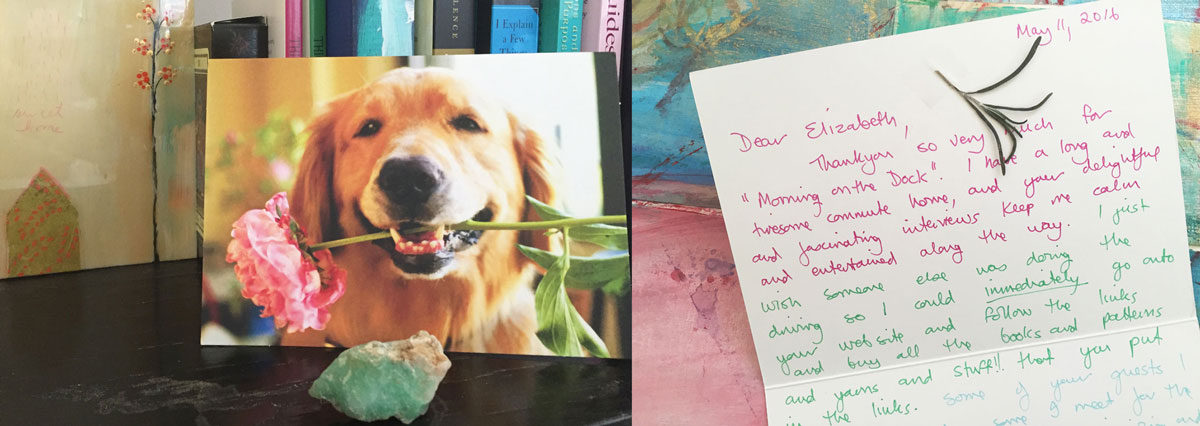 sweet
home
LENCE
I Explain
a Few
Things
PURPOSE
Guides
May 11, 2016
Dear Elizabeth,
Thankyou so very much for
"Morning on the Dock". I have a long and
tiresome commute home, and your delightful
and fascinating interviews keep me calm
and entertained along the way. I just
wish someone else was doing the
driving so I could immediately go onto
your website and follow the links
and buy all the books and patterns
and yarns and stuff!! that you put
in the links. Some of your guests I
some I meet for the
and